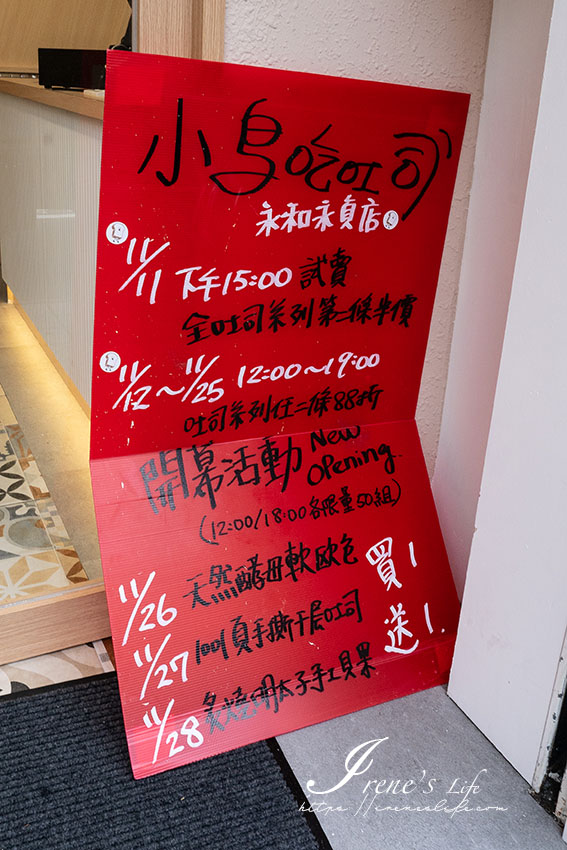 小鳥吃吐司
永和永貞店
11/11 下午15:00 試賣
全吐司系列第二條半價
11/12~11/25 12:00~19:00
吐司系列任二條88折
開幕活動 New Opening
(12:00/18:00各限量50組)
11/26 天然酵母軟歐包
11/27 100%頁手撕千层吐司
11/28 炙燒明太子手工貝果
買1
送1.
Irene's Life
https://ireneslife.com